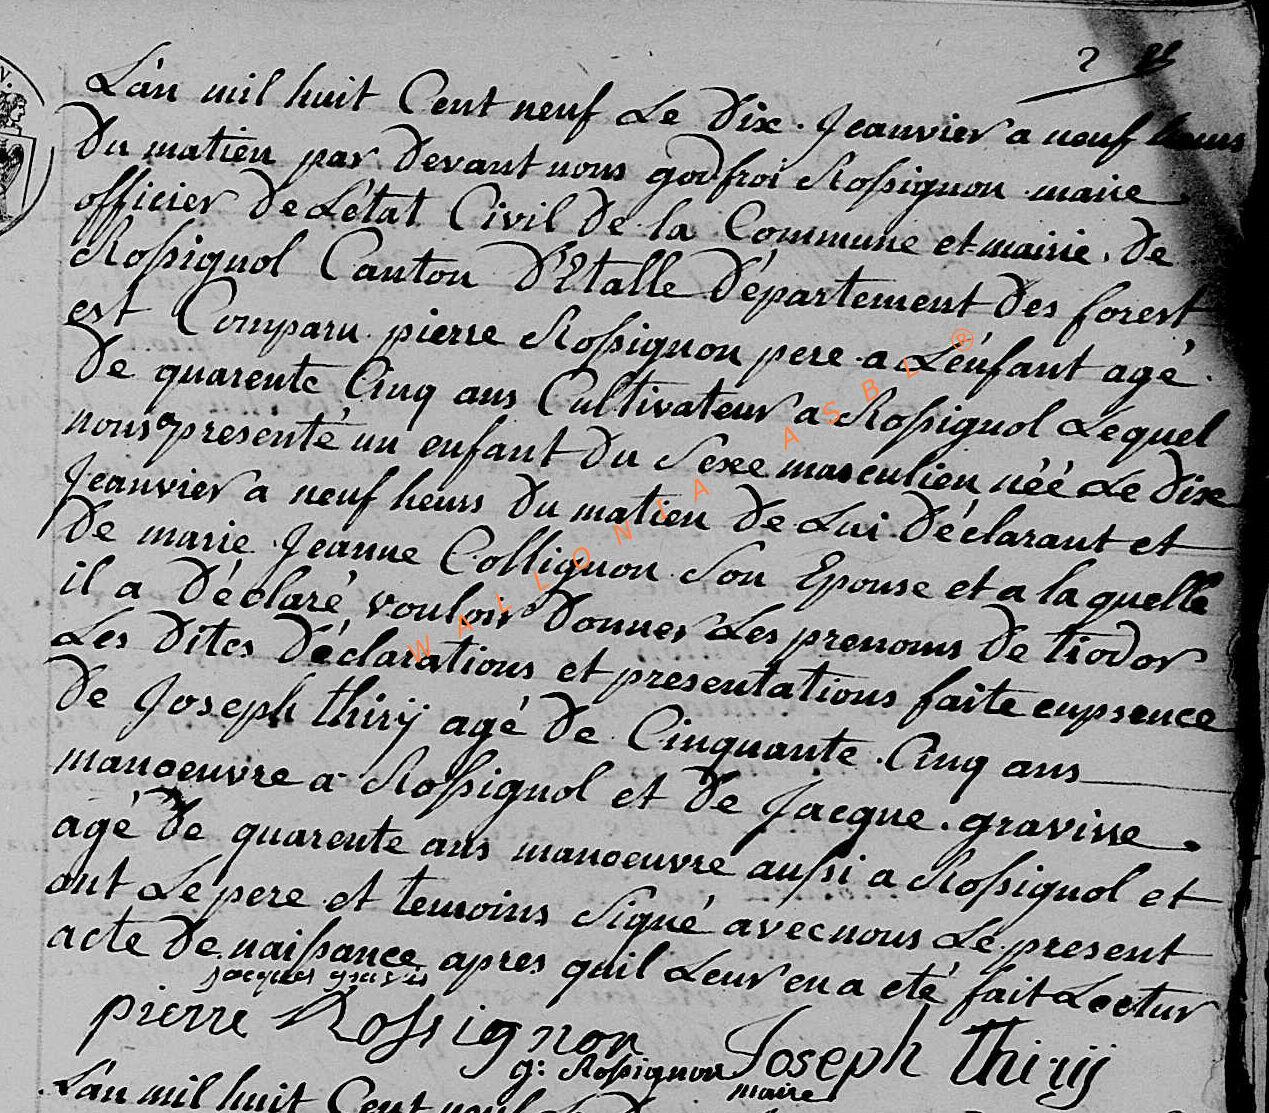 L'an mil huit Cent neuf Le Dix Jeanvier a neuf heurs
Du matien par Devant nous godfroi Rossignon maire
officier De L'état Civil De la Commune et mairie De
Rossignol Canton D'Etalle Département Des forest
est Comparu pierre Rossignon pere a L'enfant agé
De quarente Cinq ans Cultivateur a Rossignol Lequel
nous presenté un enfant Du Sexe masculien néé Le Dixe
Jeanvier a neuf heurs Du matien De Lui Déclarant et
De marie Jeanne Collignon Son Epouse et a laquelle
il a Déclaré vouloir Donner Les prenoms De tiodor
Les Dites Déclarations et presentations faite enpsence
De Joseph thirÿ agé De Cinquante Cinq ans
manoeuvre a Rossignol et De Jacque gravisse
agé De quarente ans manoeuvre aussi a Rossignol et
ont Le pere et temoins Signé avec nous Le present
acte De naissance apres quil Leur en a eté fait Lectur
jacques gravis
pierre Rossignon
Joseph thirÿ
g: Rossignon
maire
L'an mil huit Cent neuf
WALLONIA ASBL ®